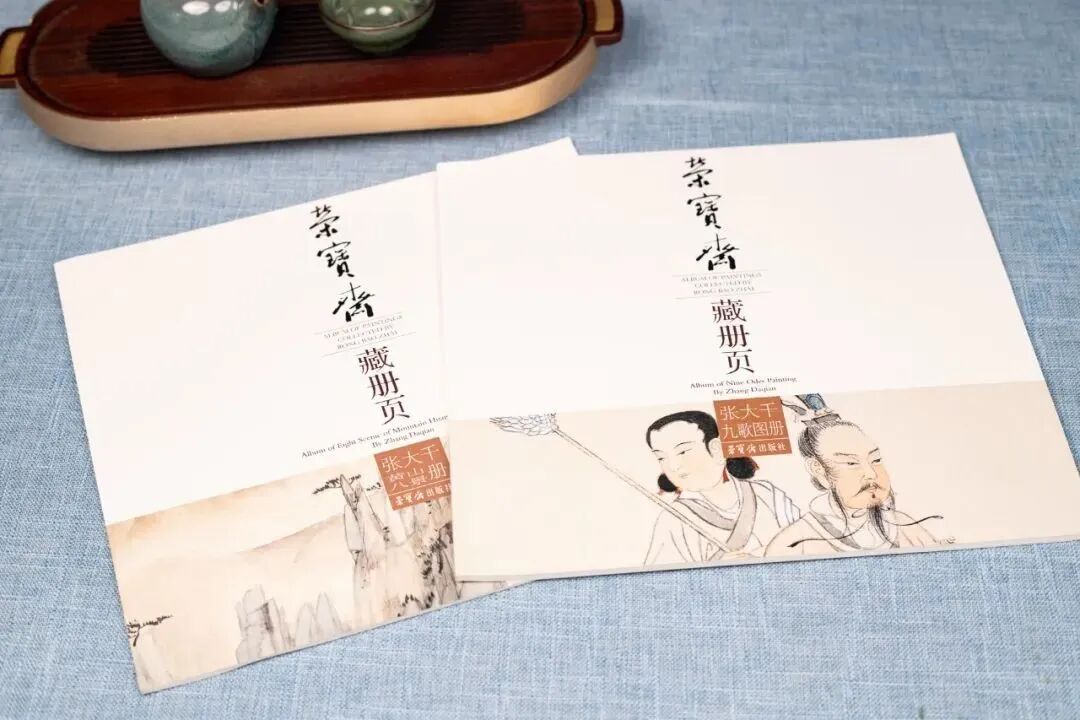 榮寶齋
ALBUM OF PAINTINGS
COLLECTED BY
RONG BAO ZHAI
藏册页
Album of Eight Scene of Mountain Huan
By Zhang Daqian
张大千
黄山
八景册
荣宝斋出版社
榮寶齋
ALBUM OF PAINTINGS
COLLECTED BY
RONG BAO ZHAI
藏册页
Album of Nine Odes Painting
By Zhang Daqian
张大千
九歌图册
荣宝斋出版社